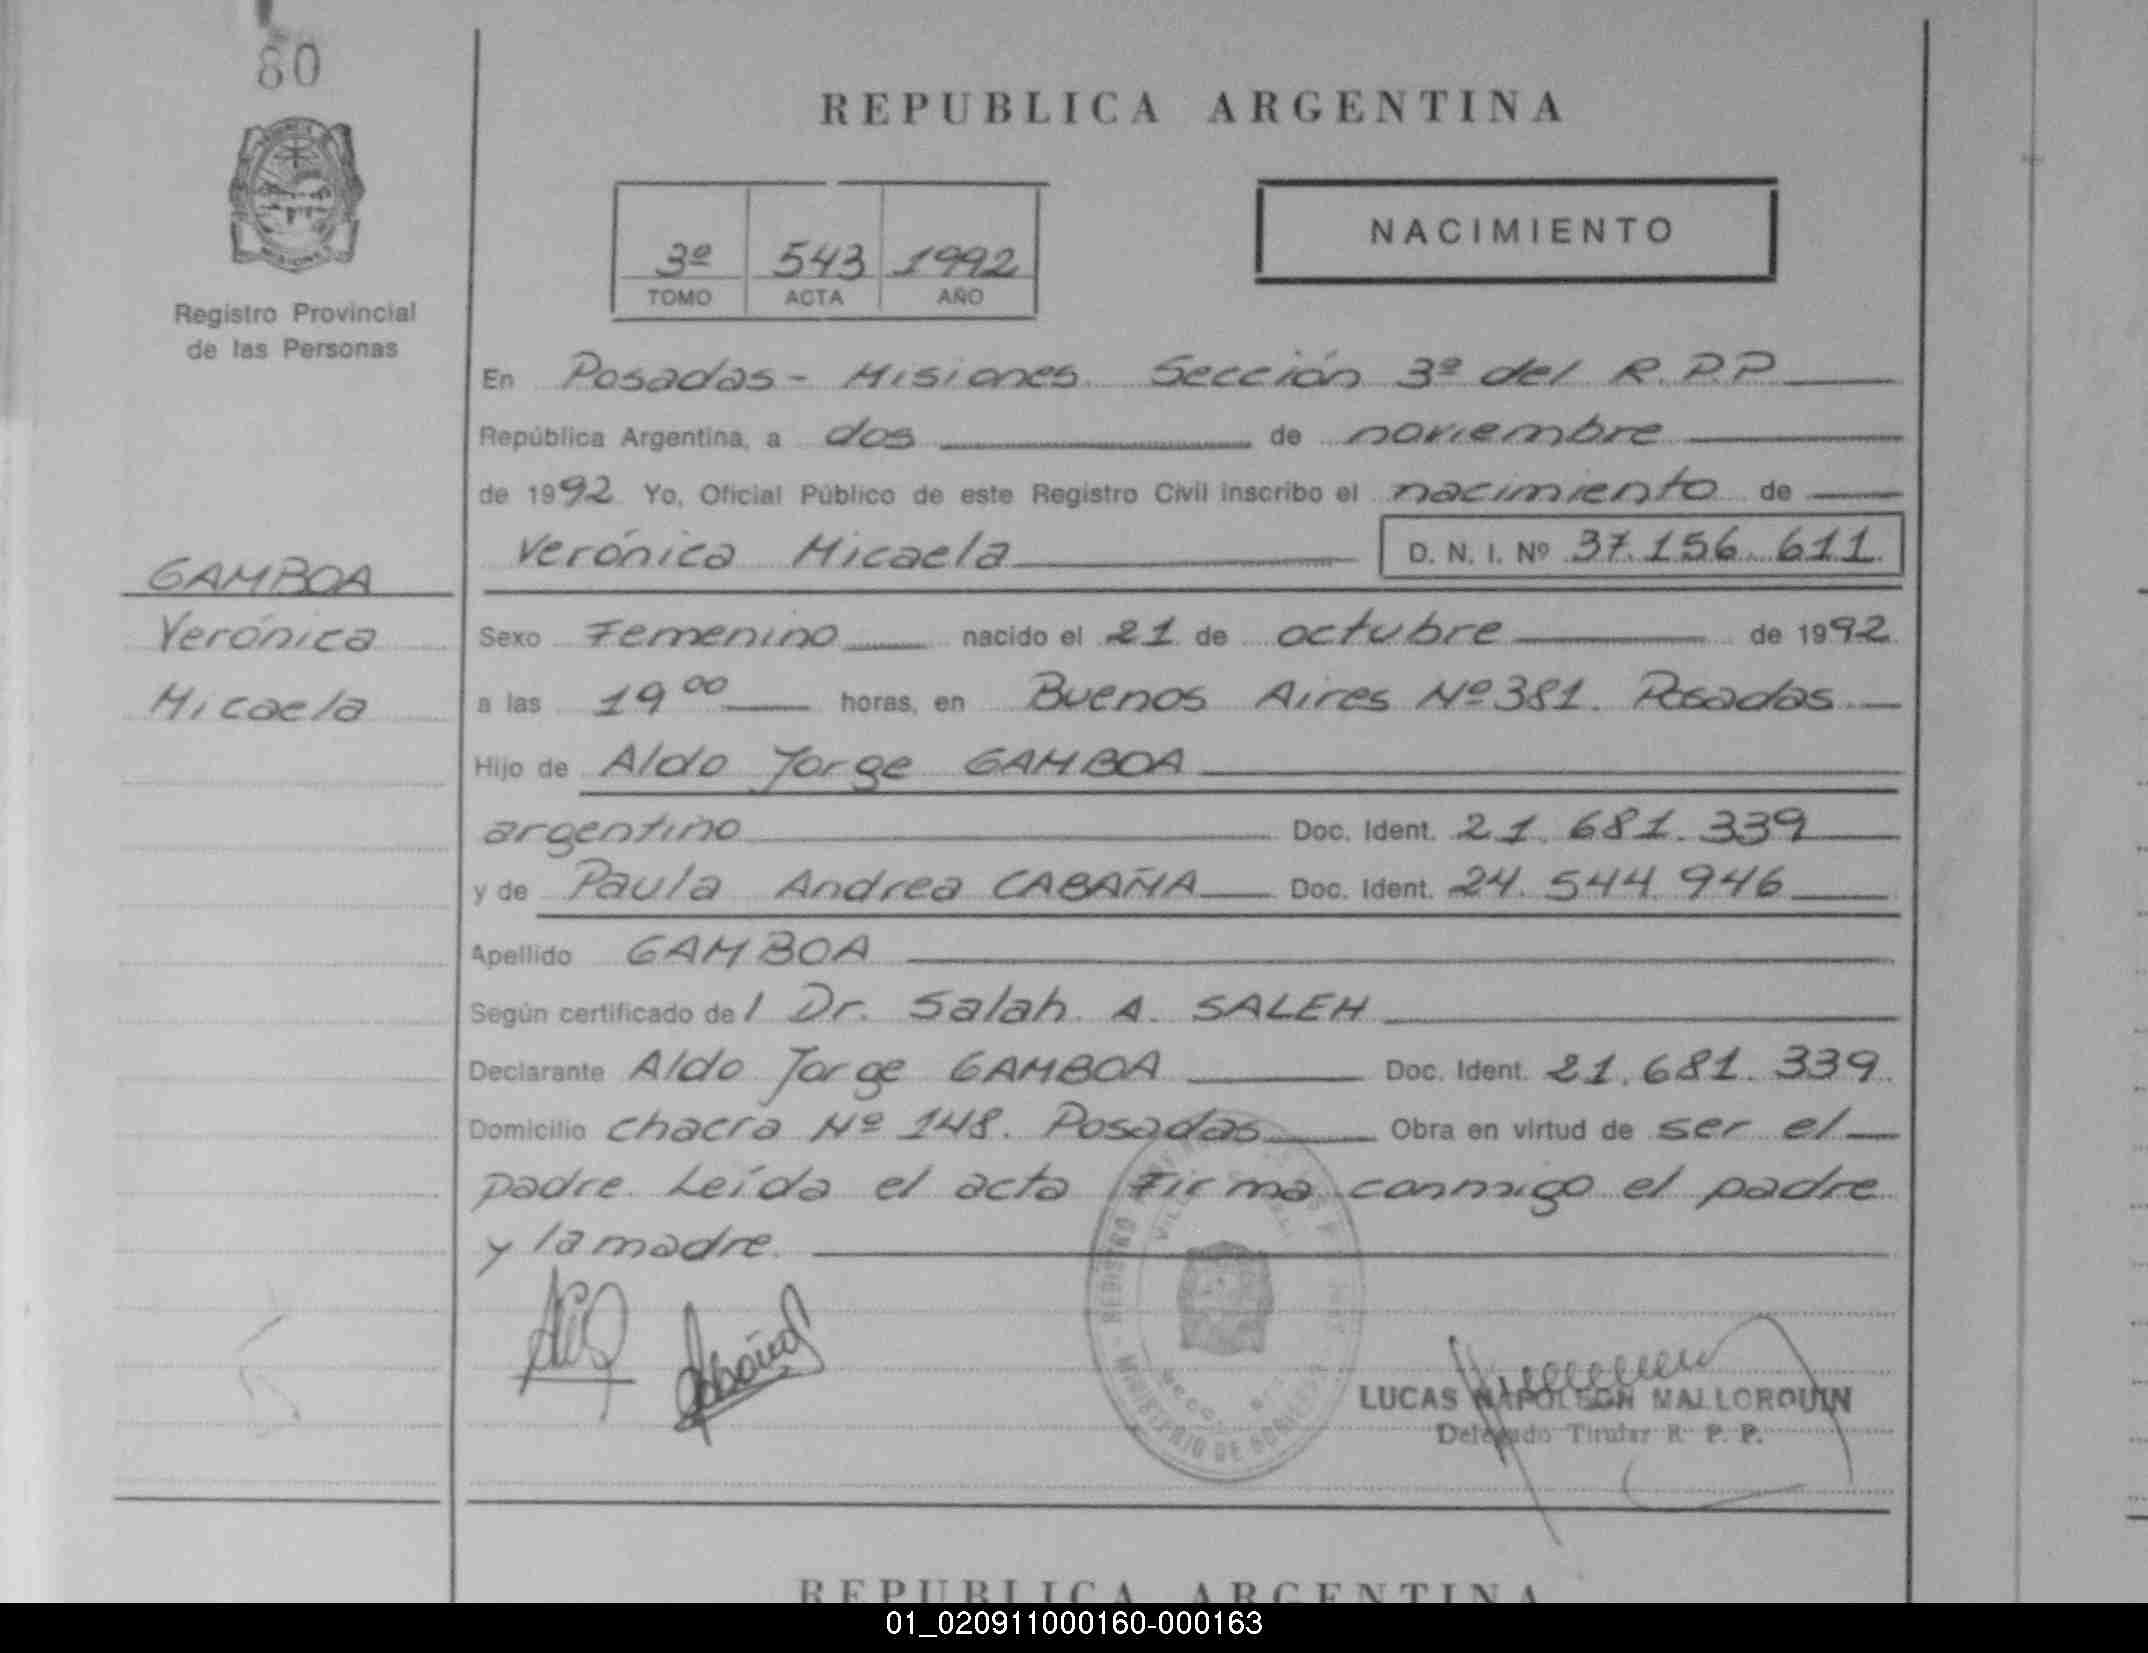 80
REPUBLICA ARGENTINA
NACIMIENTO
3º 543 1992
TOMO ACTA AÑO
Registro Provincial
de las Personas
En Posadas - Misiones. Sección 3º del R.P.P
República Argentina, a dos de noviembre
de 1992 Yo, Oficial Público de este Registro Civil inscribo el nacimiento de
Verónica Micaela D. N. I. Nº 37.156.611
GAMBOA
Verónica
Micaela
Sexo Femenino nacido el 21 de octubre de 1992
a las 19 00 horas, en Buenos Aires Nº 381. Posadas
Hijo de Aldo Jorge GAMBOA
argentino Doc. Ident. 21.681.339
y de Paula Andrea CABAÑA Doc. Ident. 24.544.946
Apellido GAMBOA
Según certificado del Dr. Salah A. SALEH
Declarante Aldo Jorge GAMBOA Doc. Ident. 21.681.339
Domicilio chacra Nº 148. Posadas Obra en virtud de ser el
padre. Leída el acta Firma conmigo el padre
y la madre.
REGISTRO
MINISTERIO DE GOBIERNO
LUCAS NAPOLEON MALLORQUIN
Delegado Titular R. P. P.
REPUBLICA ARGENTINA
01_020911000160-000163